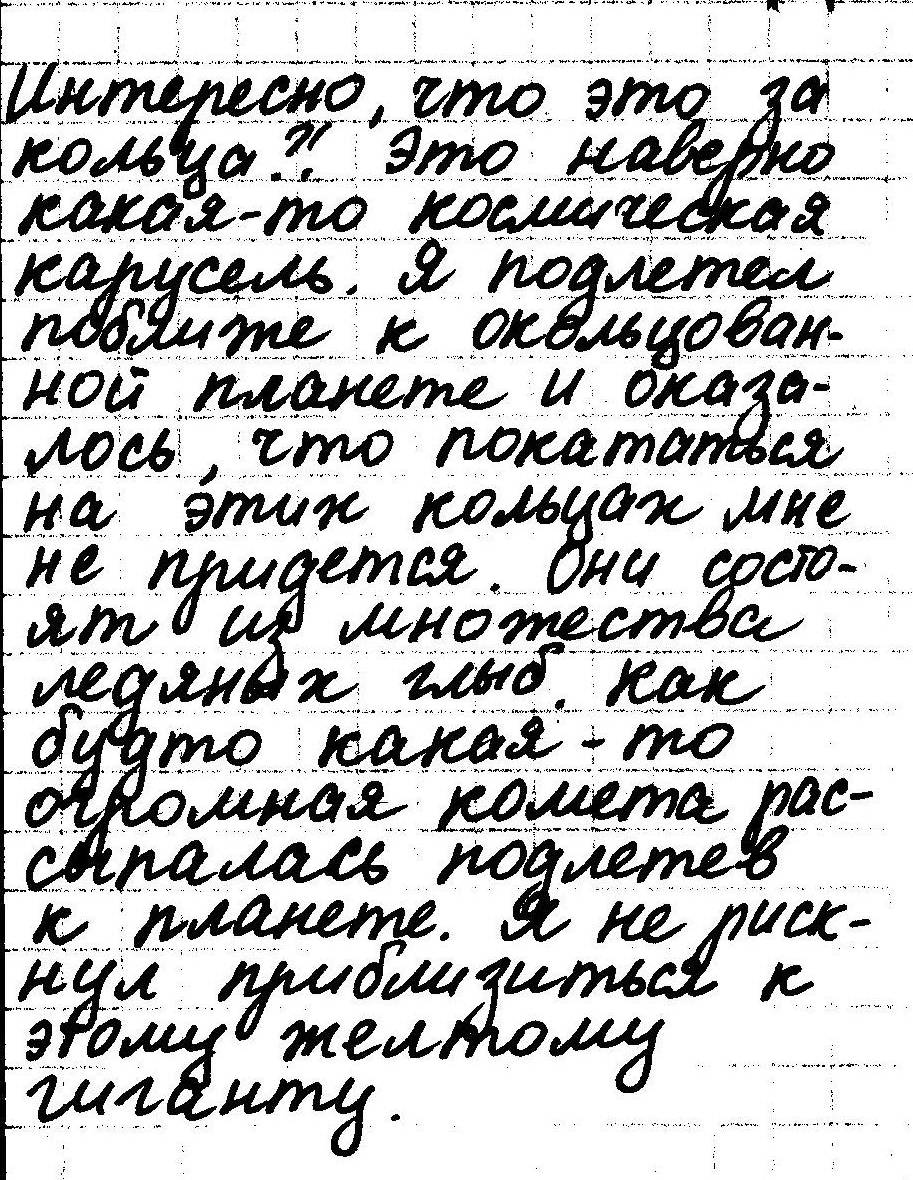 Интересно, что это за
кольца?! Это наверно
какая-то космическая
карусель. Я подлетел
поближе к окольцован-
ной планете и оказа-
лось, что покататься
на этих кольцах мне
не придется. Они состо-
ят из множества
ледяных глыб. Как
будто какая-то
огромная комета рас-
сыпалась подлетев
к планете. Я не риск-
нул приблизиться к
этому желтому
гиганту.